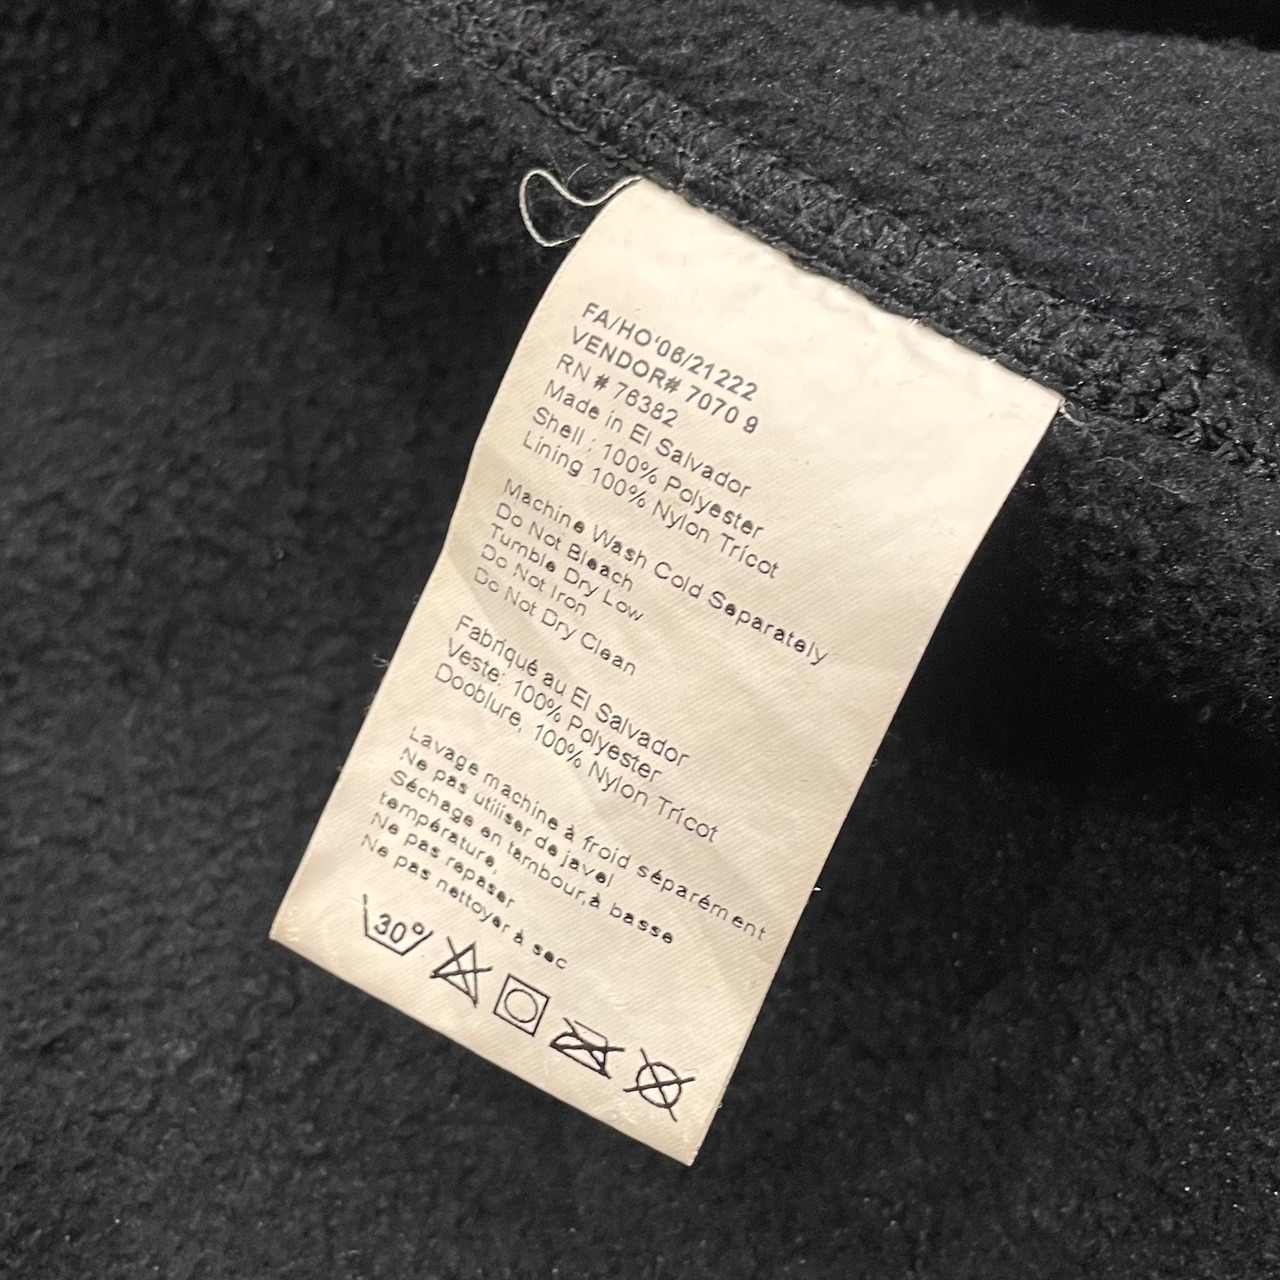 FA/HO'06/21222
VENDOR# 7070 9
RN # 76382
Made in El Salvador
Shell : 100% Polyester
Lining 100% Nylon Tricot
Machine Wash Cold Separately
Do Not Bleach
Tumble Dry Low
Do Not Iron
Do Not Dry Clean
Fabriqué au El Salvador
Veste: 100% Polyester
Dooblure, 100% Nylon Tricot
Lavage machine à froid séparément
Ne pas utiliser de javel
Séchage en tambour,à basse
température,
Ne pas repaser
Ne pas nettoyer à sec
30°